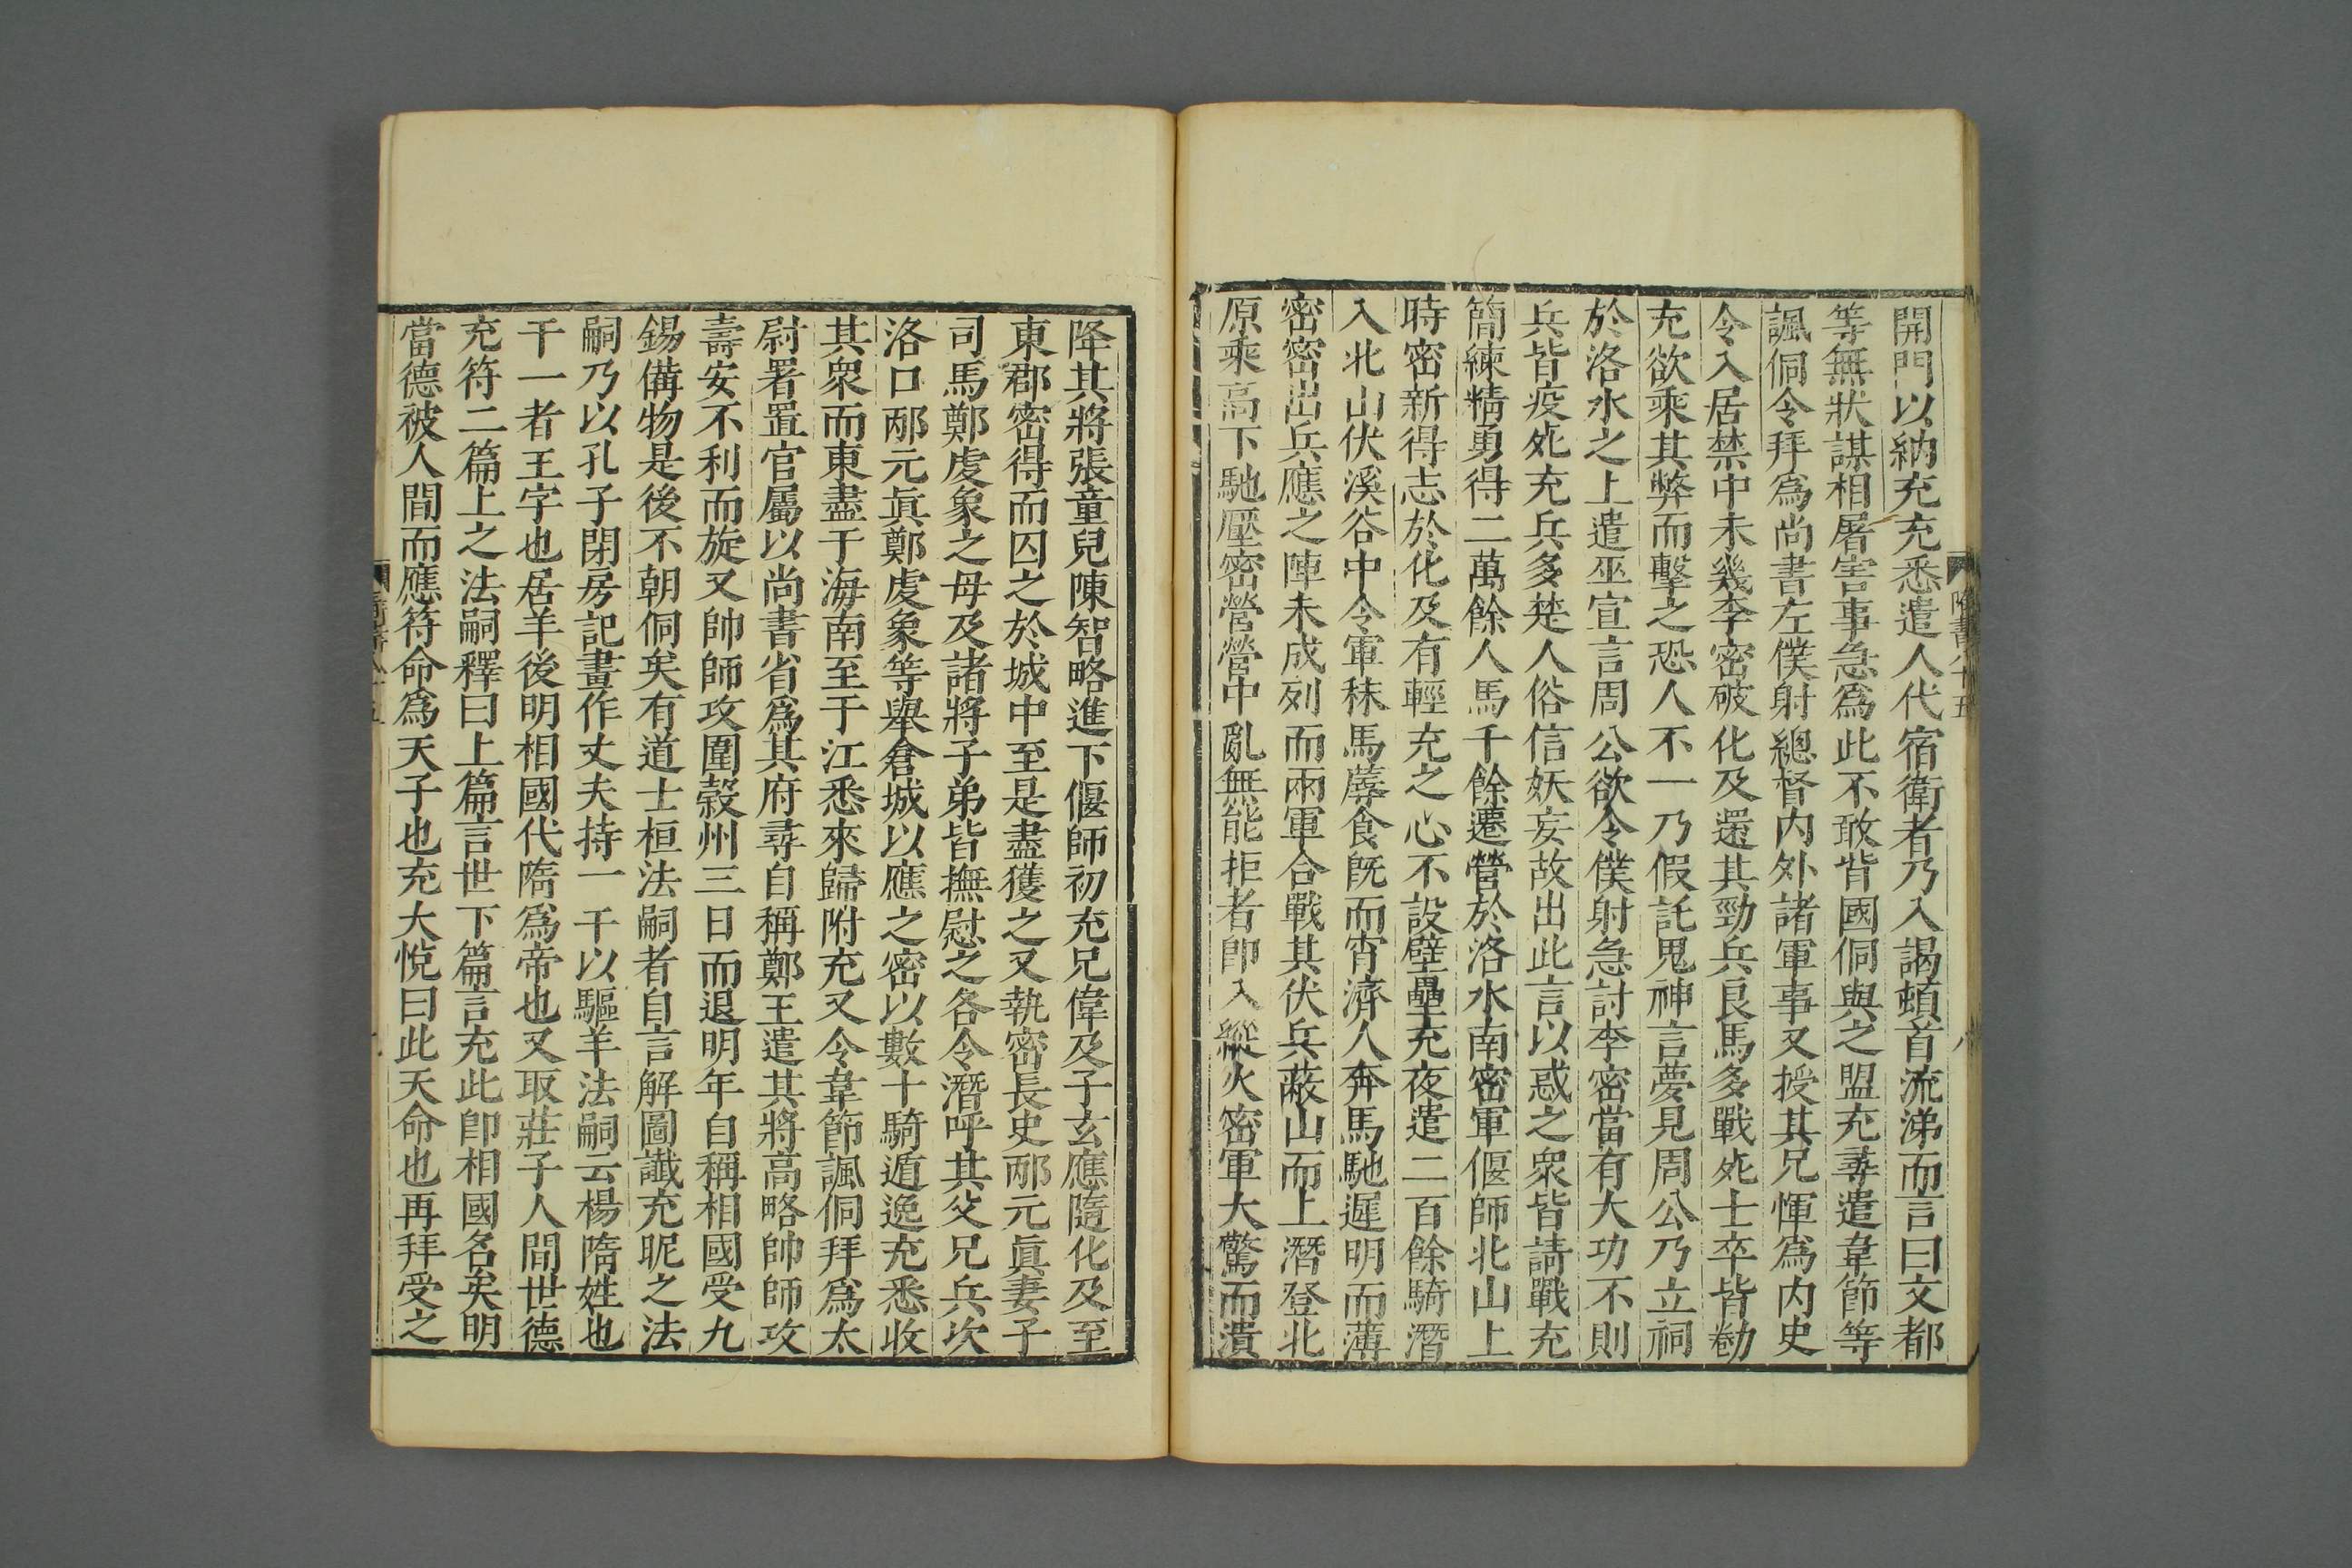 開門以納充充悉遣人代宿衛者乃入謁頓首流涕而言曰文都
等無狀謀相屠害事急爲此不敢背國侗與之盟充尋遣韋節等
諷侗令拜爲尚書左僕射總督内外諸軍事又授其兄惲爲内史
令入居禁中未幾李密破化及還其勁兵良馬多戰死士卒皆勌
充欲乘其弊而擊之恐人不一乃假託鬼神言夢見周公乃立祠
於洛水之上遣巫宣言周公欲令僕射急討李密當有大功不則
兵皆疫死充兵多楚人俗信妖妄故出此言以惑之衆皆請戰充
簡練精勇得二萬餘人馬千餘遷營於洛水南密軍偃師北山上
時密新得志於化及有輕充之心不設壁壘充夜遣二百餘騎潛
入北山伏溪谷中令軍秣馬蓐食既而宵濟人奔馬馳遲明而薄
密密出兵應之陣未成列而兩軍合戰其伏兵蔽山而上潛登北
原乘高下馳壓密營營中亂無能拒者即入縱火密軍大驚而潰
隋書八十五
八
降其將張童兒陳智略進下偃師初充兄偉及子玄應隨化及至
東郡密得而囚之於城中至是盡獲之又執密長史邴元眞妻子
司馬鄭虔象之母及諸將子弟皆撫慰之各令潛呼其父兄兵次
洛口邴元眞鄭虔象等舉倉城以應之密以數十騎遁逸充悉收
其衆而東盡于海南至于江悉來歸附充又令韋節諷侗拜爲太
尉署置官屬以尚書省爲其府尋自稱鄭王遣其將高略帥師攻
壽安不利而旋又帥師攻圍穀州三日而退明年自稱相國受九
錫備物是後不朝侗矣有道士桓法嗣者自言解圖讖充昵之法
嗣乃以孔子閉房記畫作丈夫持一干以驅羊法嗣云楊隋姓也
干一者王字也居羊後明相國代隋爲帝也又取莊子人間世德
充符二篇上之法嗣釋曰上篇言世下篇言充此即相國名矣明
當德被人間而應符命爲天子也充大悅曰此天命也再拜受之